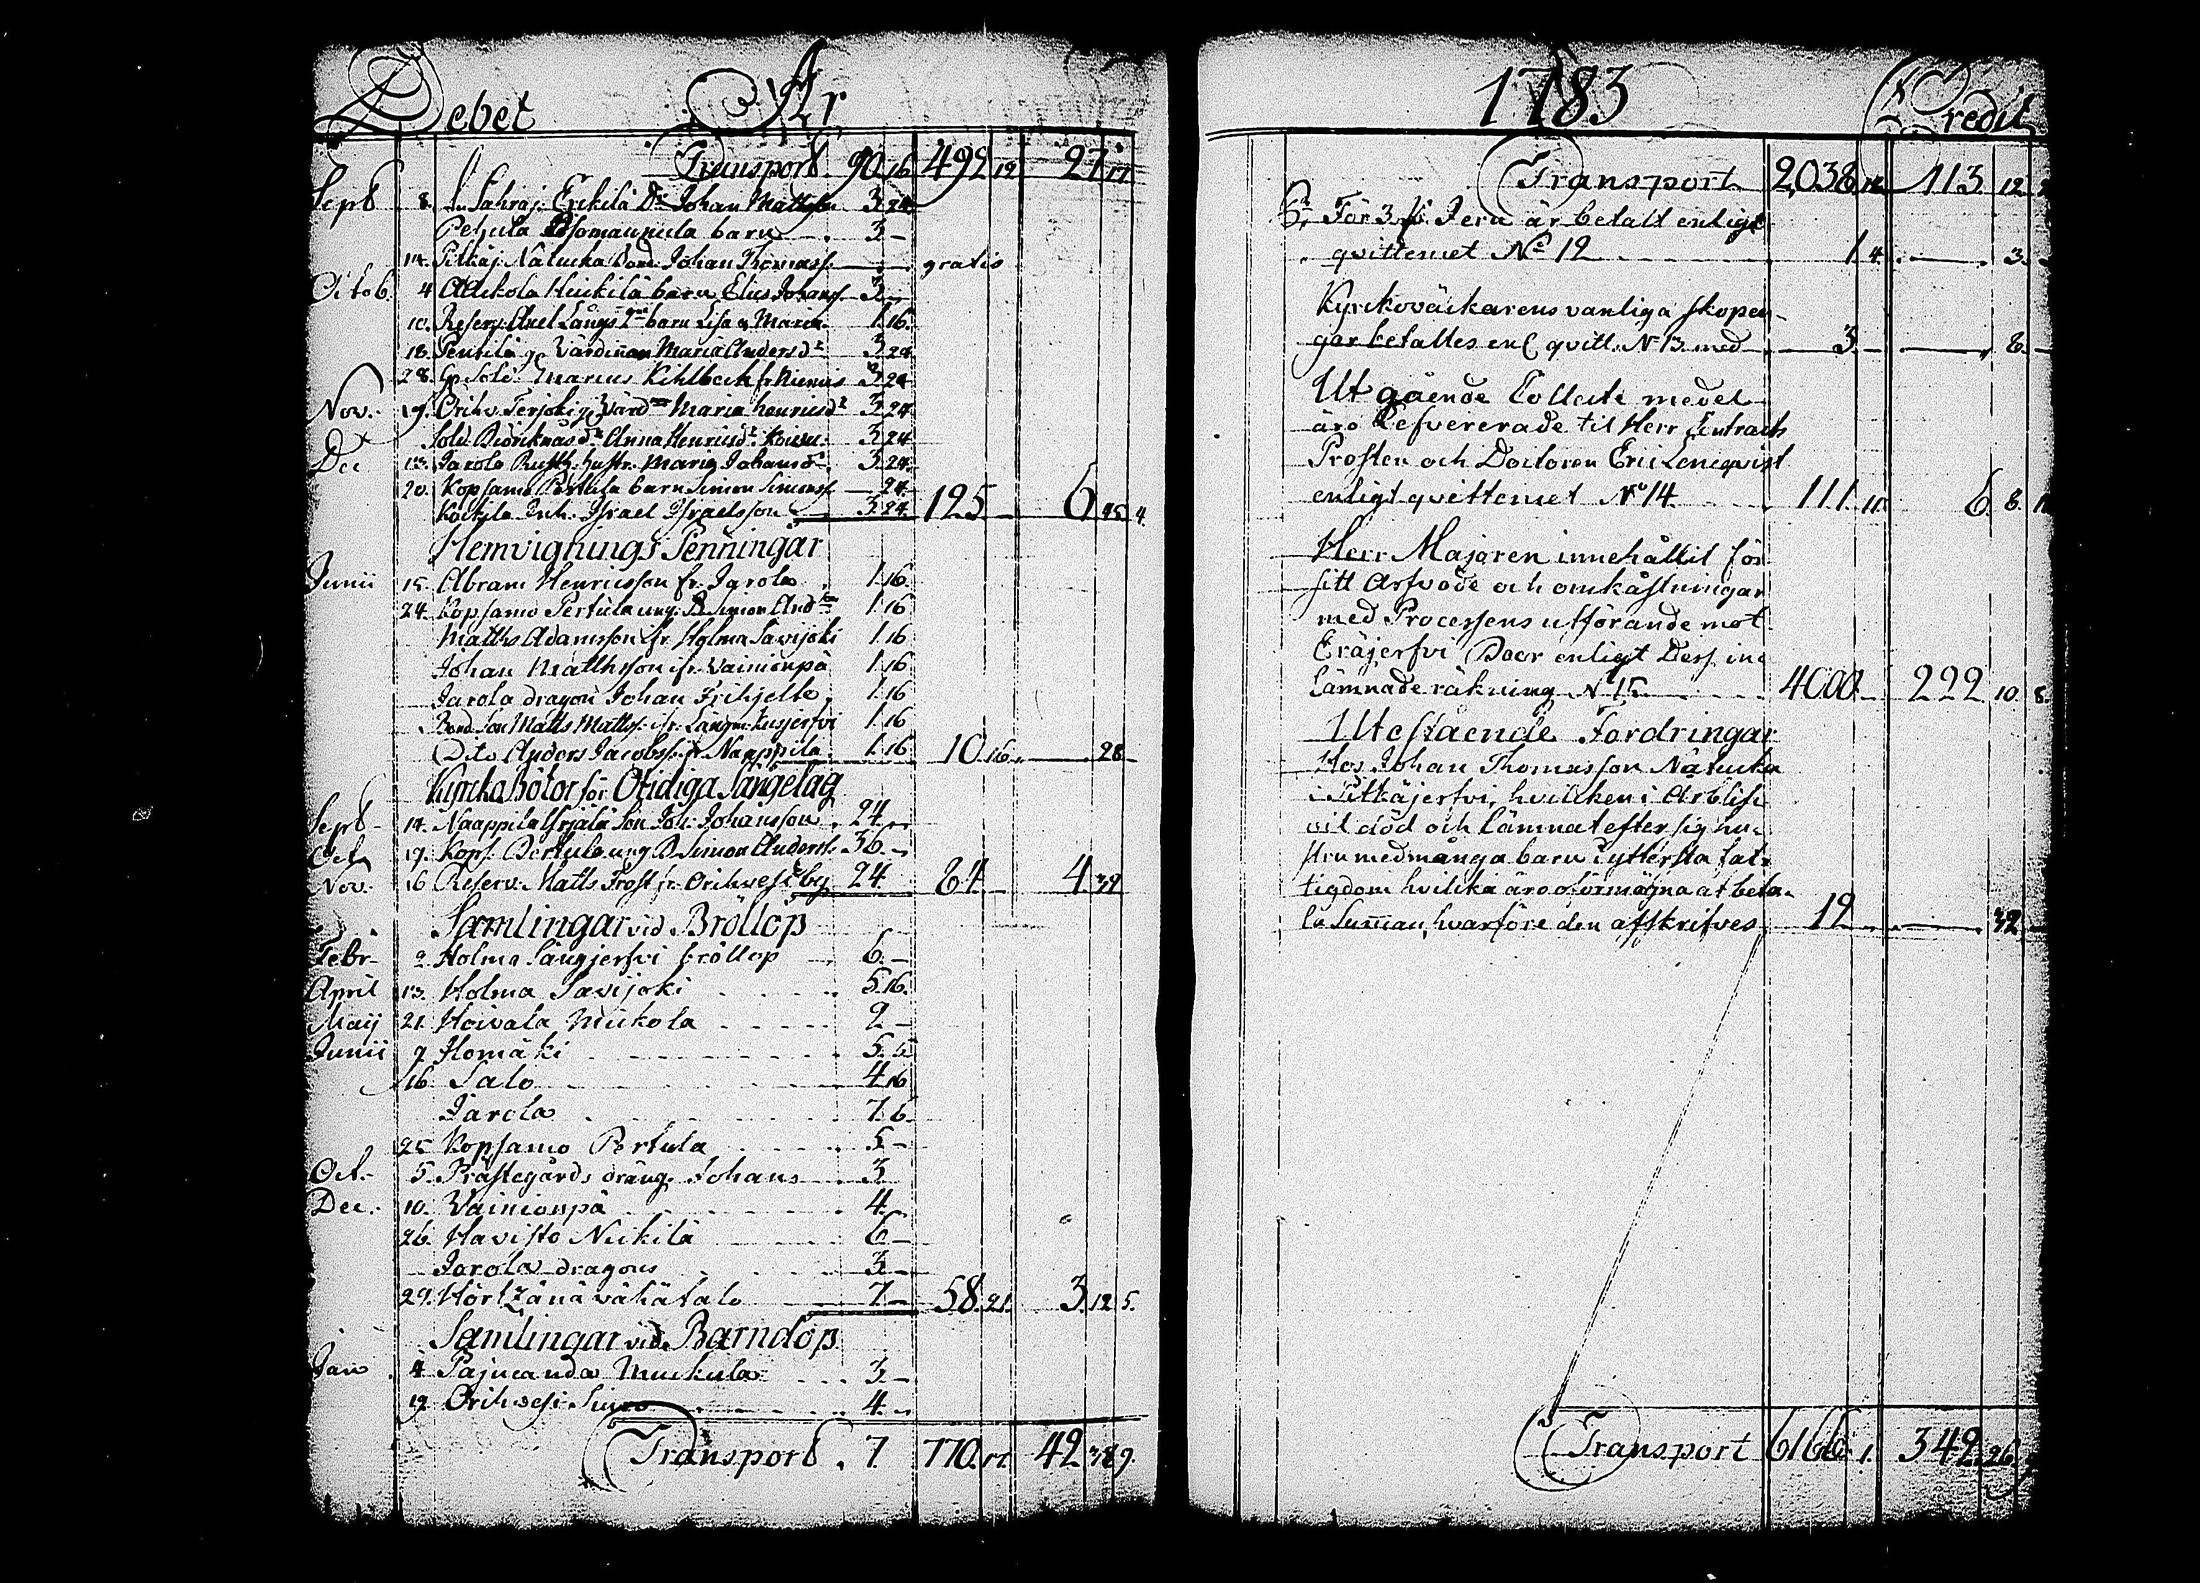 Debet År
Transport 90.16. 492.12. 27.17.
Sept 8. Erkilä Dr Johan 3.24.
Pehula barn 3.-
14. Pitkäj. Nätucka Bond. Johan Thomass. gratis
Octob. 4. Heickilä barn Elias Johanss. 3.-
10. Reserv. Axel Långs 2ne barn Lisa & Maria 1.16.
18. Penttilä ga Värdinnan Maria Andersdr 3.24.
28. Sold. Marcus Kihlbeck fr 3.24.
Nov. 19. Orihv. Terjoki ga Värd Maria Henricsdr 3.24.
Sold. dr Anna Henricsdr 3.24.
Dec 13. Jarola Rusth. hustr. Maria Johansd. 3.24.
20. Kopsamo Pertula barn Simon Simonss. 24.
Inh. Israel Israelsson 3.24. 125.- 6.45.4.
Hemvignings Penningar
Junii 15. Abram Henricsson fr. Jarola 1.16.
24. Kopsamo Pertula ung. B. Simon And 1.16
Matts Adamsson ifr. Holma Savijoki 1.16
Johan Matthsson ifr. Vainionpä 1.16
Jarola dragon Johan Frihjelte 1.16
Bond. Son Matts Mattss. ifr. 1.16
Dito Anders Jacobss. fr. Naappila 1.16 10.16. 28.
Kyrcko Böter för Otidiga Sängelag
Sept. 14. Naappila Yrjälä Son Joh. Johansson 24.-
Oct. 19. Kops. Pertula ung B. Simon Anderss. 36.-
Nov. 16 Reserv. Matts Frost fr. Orihvesi by 24. 84.- 4.32
Samlingar vid Bröllop
Febr. 2. Holma Längjerfvi bröllop 6.-
April 13. Holma Savijoki 5.16.
Maij 21. Hoivala Muckola 2.-
Junii 9. Homäki 5.5
16. Salo 4.16
Jarola 7.6.
25. Kopsamo Pertula 5.-
Oct. 5. Prästegårds dräng. Johans 3.
Dec. 10. Vainionpä 4.
26. Havisto Nickilä 6.-
Jarola dragons 3.-
29. Vähätalo 7.- 58.21. 3.12.5.
Samlingar vid Barndop
Jan. 4. Pajucanda Muckula 3.-
19. Orihvesi 4.-
Transport. 7. 770.17. 42.38.9.
1783 Credit
Transport 2,038.12. 113.12.
För 3 Jern är betalt enligt
qvittencet No 12 1.4. 3.-
Kyrckoväckarens vanliga skopen-
gar betaltes enl. qvitt. No 13 med 3.- 8.-
Utgående Collect medel
äro Lefvererade til Herr Contracts
Prosten och Doctoren Eric Lencqvist
enligt qvittencet No 14. 111.11. 6.8.
Herr Majoren innehållit för
sitt Arfvode och omkåstningar
med Processens utförande mot
Eräjerfvi Boer enligt Dess in-
lämnade räkning No 15 4000.- 222.10.8.
Utestående Fordringar
Hos Johan Thomasson Nätucka
i Pitkäjerfvi, hvilcken i
vit död och lämnat efter sig hu-
stru med många barn i yttersta fat-
tigdom hvilcka äro oförmögna at beta-
la Summan, hvarföre den afskrifves 12.- 32.-
Transport 6166.1. 342.26.